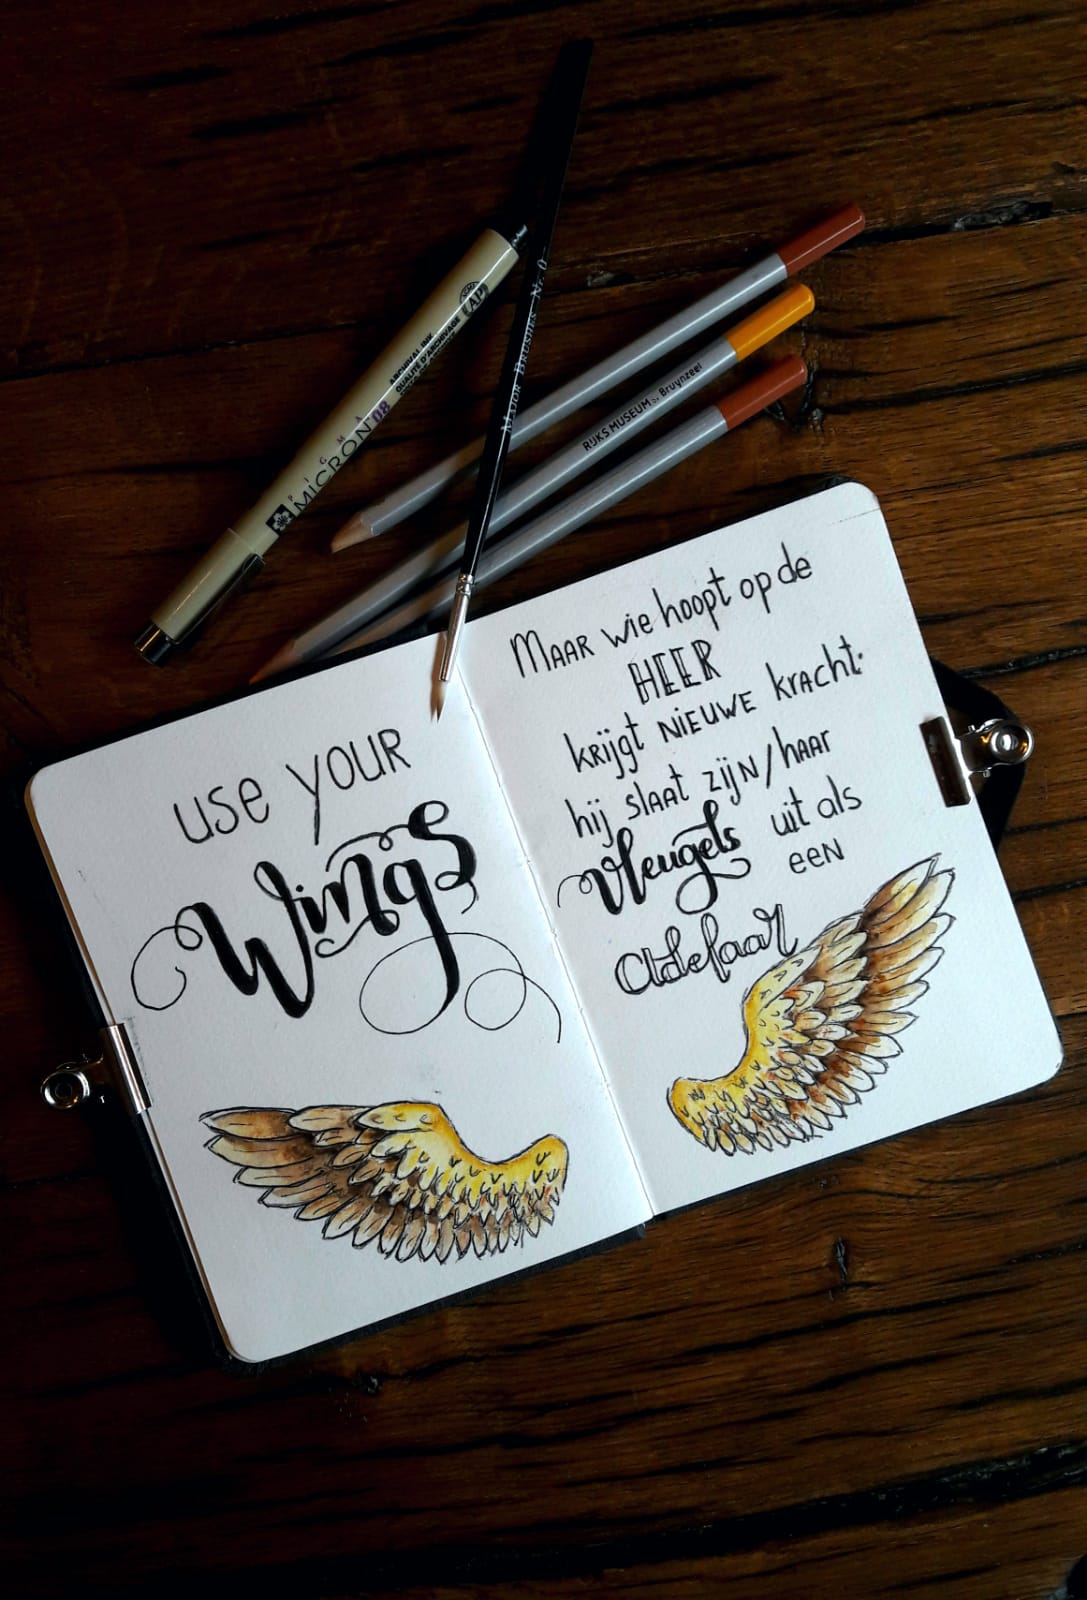 MAJOR BRUSHES Nr. 0
ARCHIVAL INK
QUALITÉ D'ARCHIVAGE
AP
PIGMA
MICRON 08
RIJKS MUSEUM Bruynzeel
use YOUR
Wings
MAAR wie hoopt op de
HEER
krijgt NIEUWE kracht.
hij slaat zijn/haar
Vleugels uit als
een
Adelaar